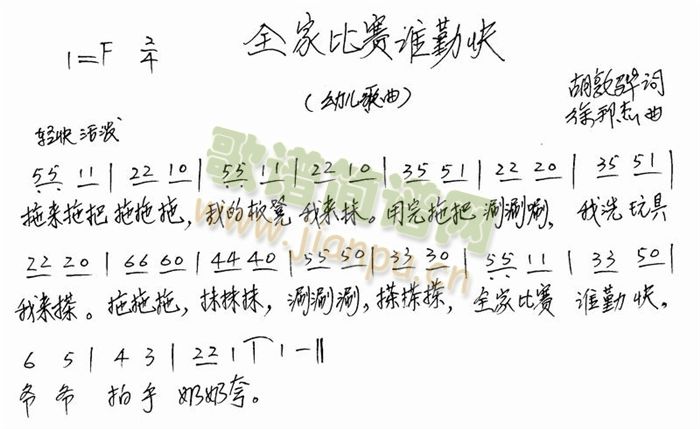 全家比赛谁勤快
1=F 2/4
(幼儿歌曲)
胡敦骅词
徐邦杰曲
轻快 活泼
55 11 | 22 10 | 55 11 | 22 10 | 35 51 | 22 20 | 35 51 |
拖来拖把 拖拖拖, 我的板凳 我来抹。用完拖把 涮涮涮, 我洗玩具
22 20 | 66 60 | 44 40 | 55 50 | 33 30 | 55 11 | 33 50 |
我来搽。拖拖拖, 抹抹抹, 涮涮涮, 搽搽搽, 全家比赛 谁勤快,
6 5 | 4 3 | 22 1 | 1 - ‖
爷爷 拍手 奶奶夸。
歌谱简谱网
www.jianpu.cn